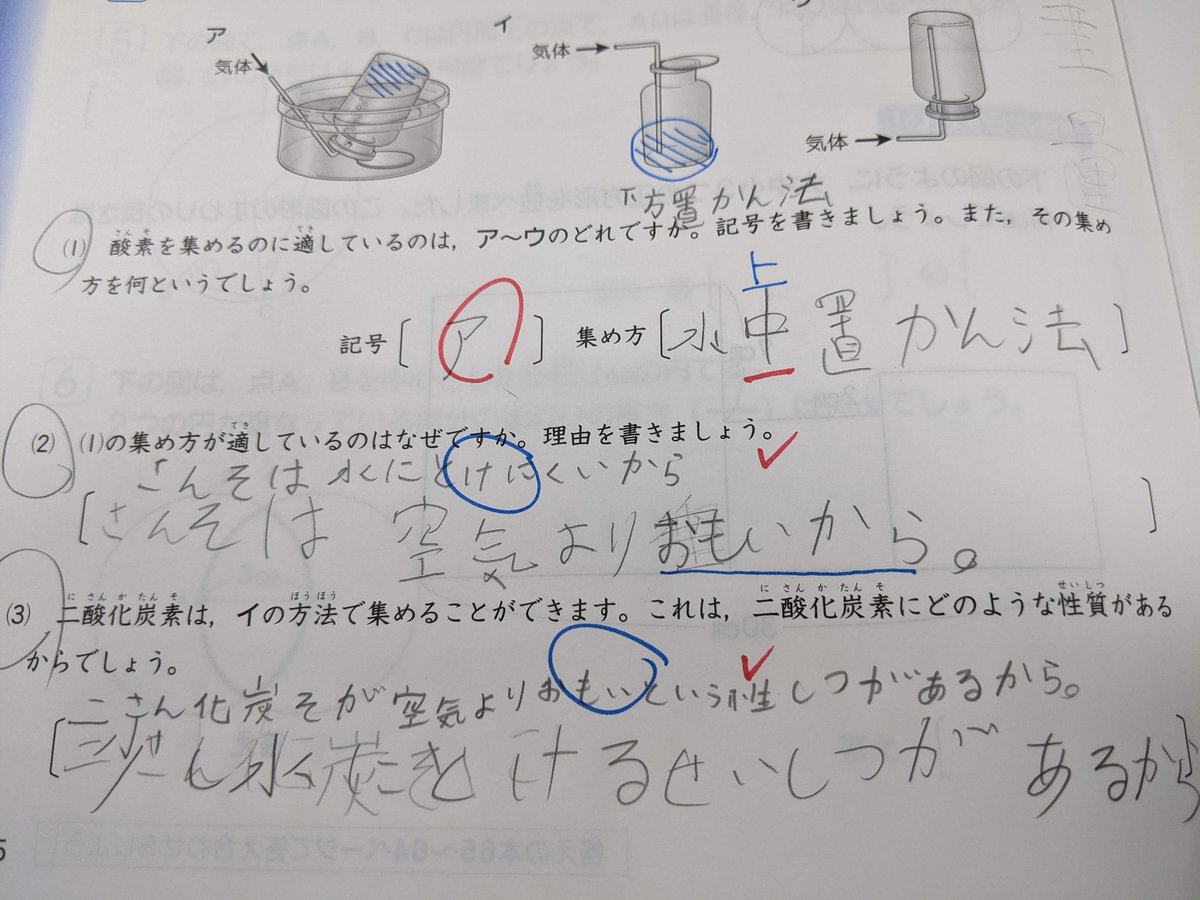 ア
イ
気体
気体
気体
下方置かん法
(1) 酸素を集めるのに適しているのは，ア〜ウのどれですか。記号を書きましょう。また，その集め
さんそ
てき
方を何というでしょう。
上
記号〔ア〕 集め方〔水中置かん法〕
(2) (1)の集め方が適しているのはなぜですか。理由を書きましょう。
てき
さんそは水にとけにくいから
〔さんそは空気よりおもいから。〕
(3) 二酸化炭素は，イの方法で集めることができます。これは，二酸化炭素にどのような性質がある
にさんかたんそ
ほうほう
にさんかたんそ
せいしつ
からでしょう。
二さん化炭そが空気よりおもいという性しつがあるから。
けるせいしつがあるから
5